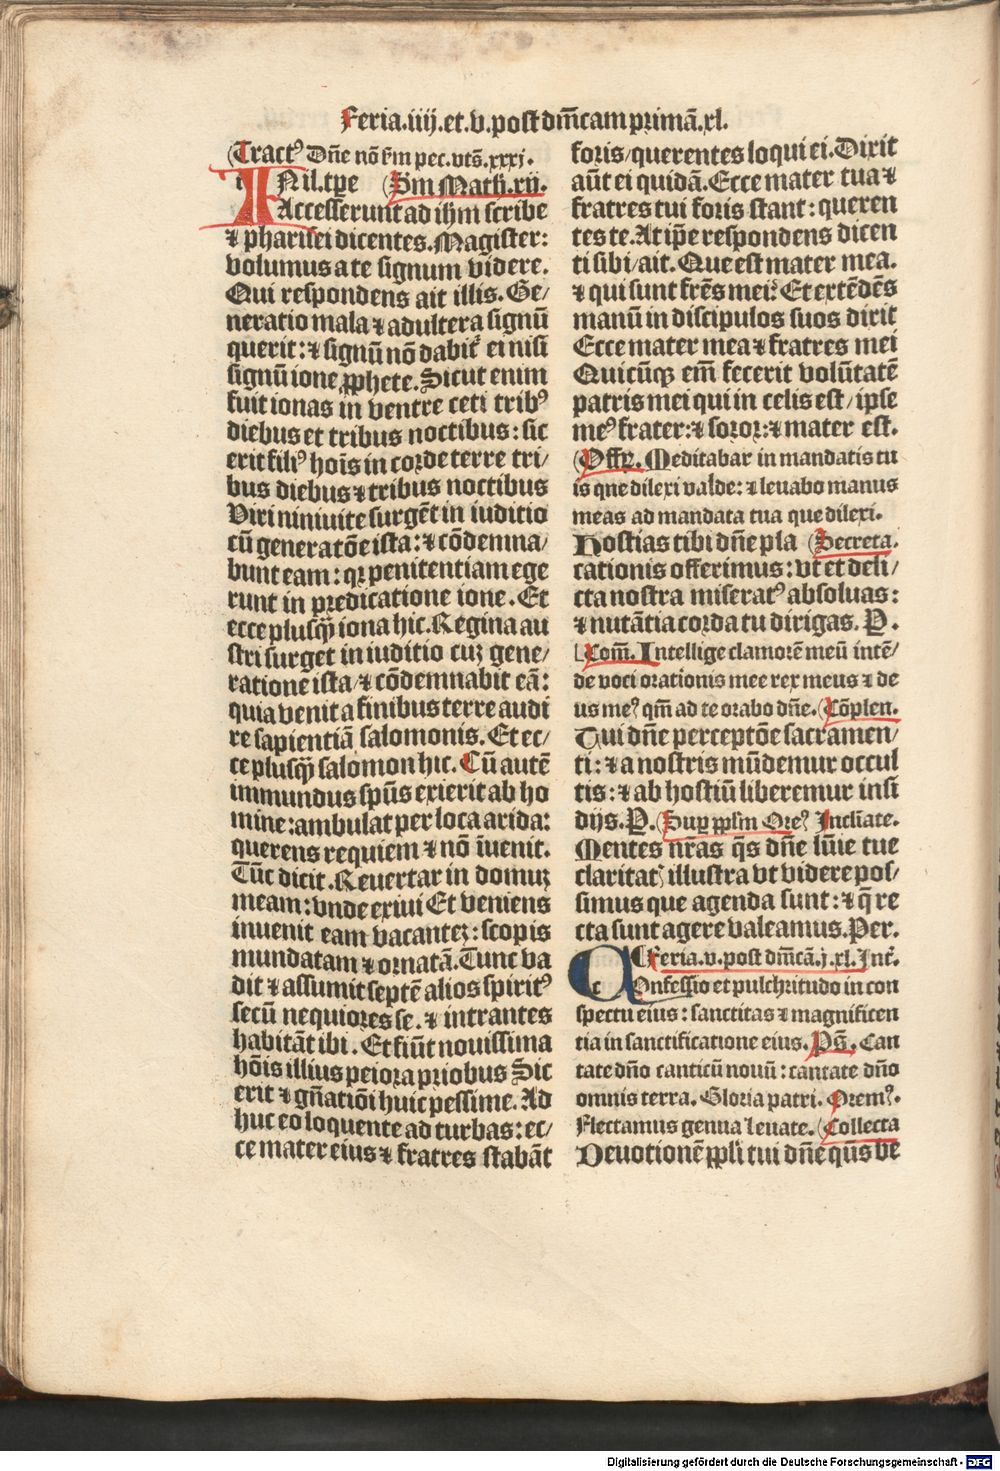 Feria.iiij.et.v.post dn̄icam primā.xl.
(Tract⁹ Dn̄e nō ẜm pec. vts̄.xxxj.
IN il.tp̄e (Sm Math.xij.
Accesserunt ad ih̄m scribe
⁊ pharisei dicentes. Magister:
volumus a te signum videre.
Qui respondens ait illis. Ge/
neratio mala ⁊ adultera signū
querit: ⁊ signū nō dabit̄ ei nisi
signū ione ꝓphete. Sicut enim
fuit ionas in ventre ceti trib⁹
diebus et tribus noctibus: sic
erit fili⁹ hoīs in corde terre tri/
bus diebus ⁊ tribus noctibus
Viri niniuite surgēt in iuditio
cū generatōe ista: ⁊ cōdemna/
bunt eam: qꝛ penitentiam ege
runt in predicatione ione. Et
ecce plusq̄ iona hic. Regina au
stri surget in iuditio cuʒ gene/
ratione ista/ ⁊ cōdemnabit eā:
quia venit a finibus terre audi
re sapientiā salomonis. Et ec/
ce plusq̄ salomon hic. Cū autē
immundus spūs exierit ab ho
mine: ambulat per loca arida:
querens requiem ⁊ nō īuenit.
Tūc dicit. Reuertar in domuʒ
meam: vnde exiui Et veniens
inuenit eam vacanteʒ: scopis
mundatam ⁊ ornatā. Tunc va
dit ⁊ assumit septē alios spirit⁹
secū nequiores se. ⁊ intrantes
habitāt ibi. Et fiūt nouissima
hōis illius peiora priobus Sic
erit ⁊ gn̄atiōi huic pessime. Ad
huc eo loquente ad turbas: ec/
ce mater eius ⁊ fratres stabāt
foris/querentes loqui ei. Dixit
aūt ei quidā. Ecce mater tua ⁊
fratres tui foris stant: queren
tes te. At ip̄e respondens dicen
ti sibi/ait. Que est mater mea.
⁊ qui sunt fr̄es mei: Et extēdēs
manū in discipulos suos dixit
Ecce mater mea ⁊ fratres mei
Quicūqꝫ em̄ fecerit volūtatē
patris mei qui in celis est/ ipse
me⁹ frater: ⁊ soror: ⁊ mater est.
(Offꝝ. Meditabar in mandatis tu
is que dilexi valde: ⁊ leuabo manus
meas ad mandata tua que dilexi.
Hostias tibi dn̄e pla (Secreta.
cationis offerimus: vt et deli/
cta nostra miserat⁹ absoluas:
⁊ nutātia corda tu dirigas. P.
(Com̄. Intellige clamorē meū intē/
de voci orationis mee rex meus ⁊ de
us me⁹ qm̄ ad te orabo dn̄e. (Cōplen.
Tui dn̄e perceptōe sacramen/
ti: ⁊ a nostris mūdemur occul
tis: ⁊ ab hostiū liberemur insi
dijs. P. (Suꝑ pp̄lm Ore⁹ Inclīate.
Mentes nr̄as q̄s dn̄e lūie tue
claritat̄ illustra vt videre pos/
simus que agenda sunt: ⁊ q̄ re
cta sunt agere valeamus. Per.
(Feria.v.post dn̄icā.j.xl. Int̄.
COnfessio et pulchritudo in con
spectu eius: sanctitas ⁊ magnificen
tia in sanctificatione eius. Ps̄. Can
tate dn̄o canticū nouū: cantate dn̄o
omnis terra. Gloria patri. Orem⁹.
Flectamus genua leuate. (Collecta
Deuotionē pp̄li tui dn̄e qūs be
Digitalisierung gefördert durch die Deutsche Forschungsgemeinschaft - DFG